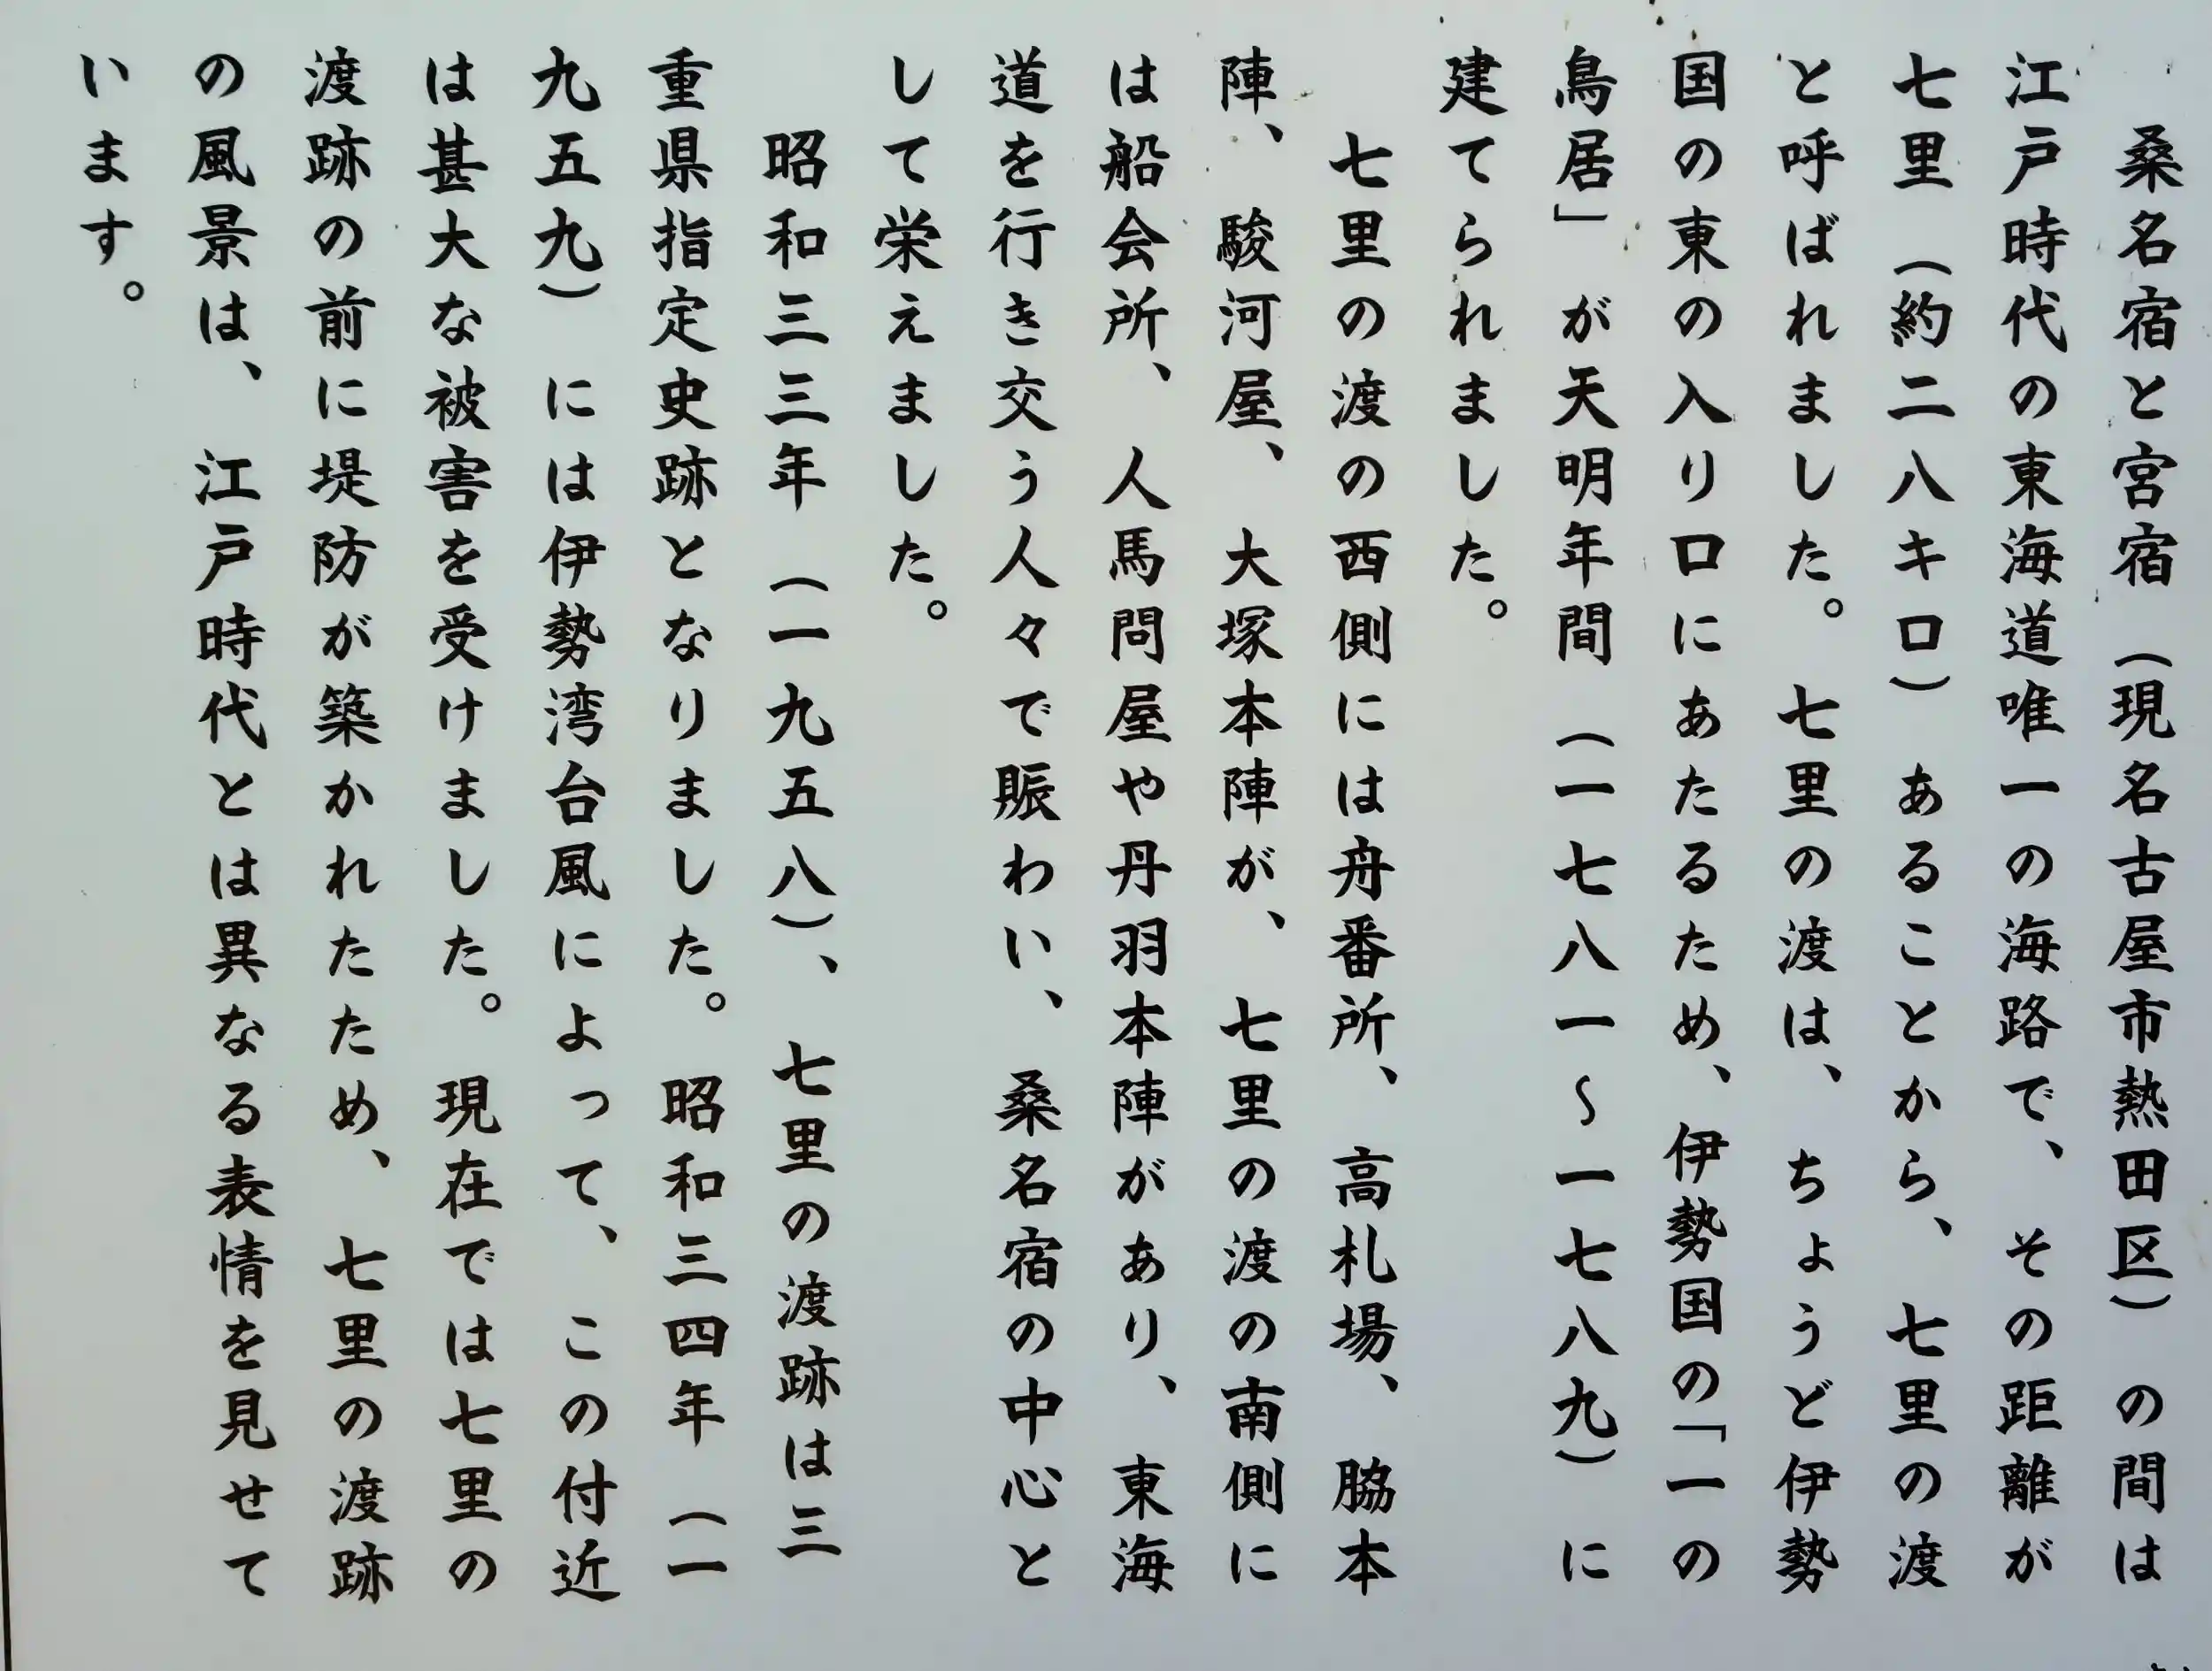 桑名宿と宮宿（現名古屋市熱田区）の間は
江戸時代の東海道唯一の海路で、その距離が
七里（約二八キロ）あることから、七里の渡
と呼ばれました。七里の渡は、ちょうど伊勢
国の東の入り口にあたるため、伊勢国の「一の
鳥居」が天明年間（一七八一～一七八九）に
建てられました。
七里の渡の西側には舟番所、高札場、脇本
陣、駿河屋、大塚本陣が、七里の渡の南側に
は船会所、人馬問屋や丹羽本陣があり、東海
道を行き交う人々で賑わい、桑名宿の中心と
して栄えました。
昭和三三年（一九五八）、七里の渡跡は三
重県指定史跡となりました。昭和三四年（一
九五九）には伊勢湾台風によって、この付近
は甚大な被害を受けました。現在では七里の
渡跡の前に堤防が築かれたため、七里の渡跡
の風景は、江戸時代とは異なる表情を見せて
います。